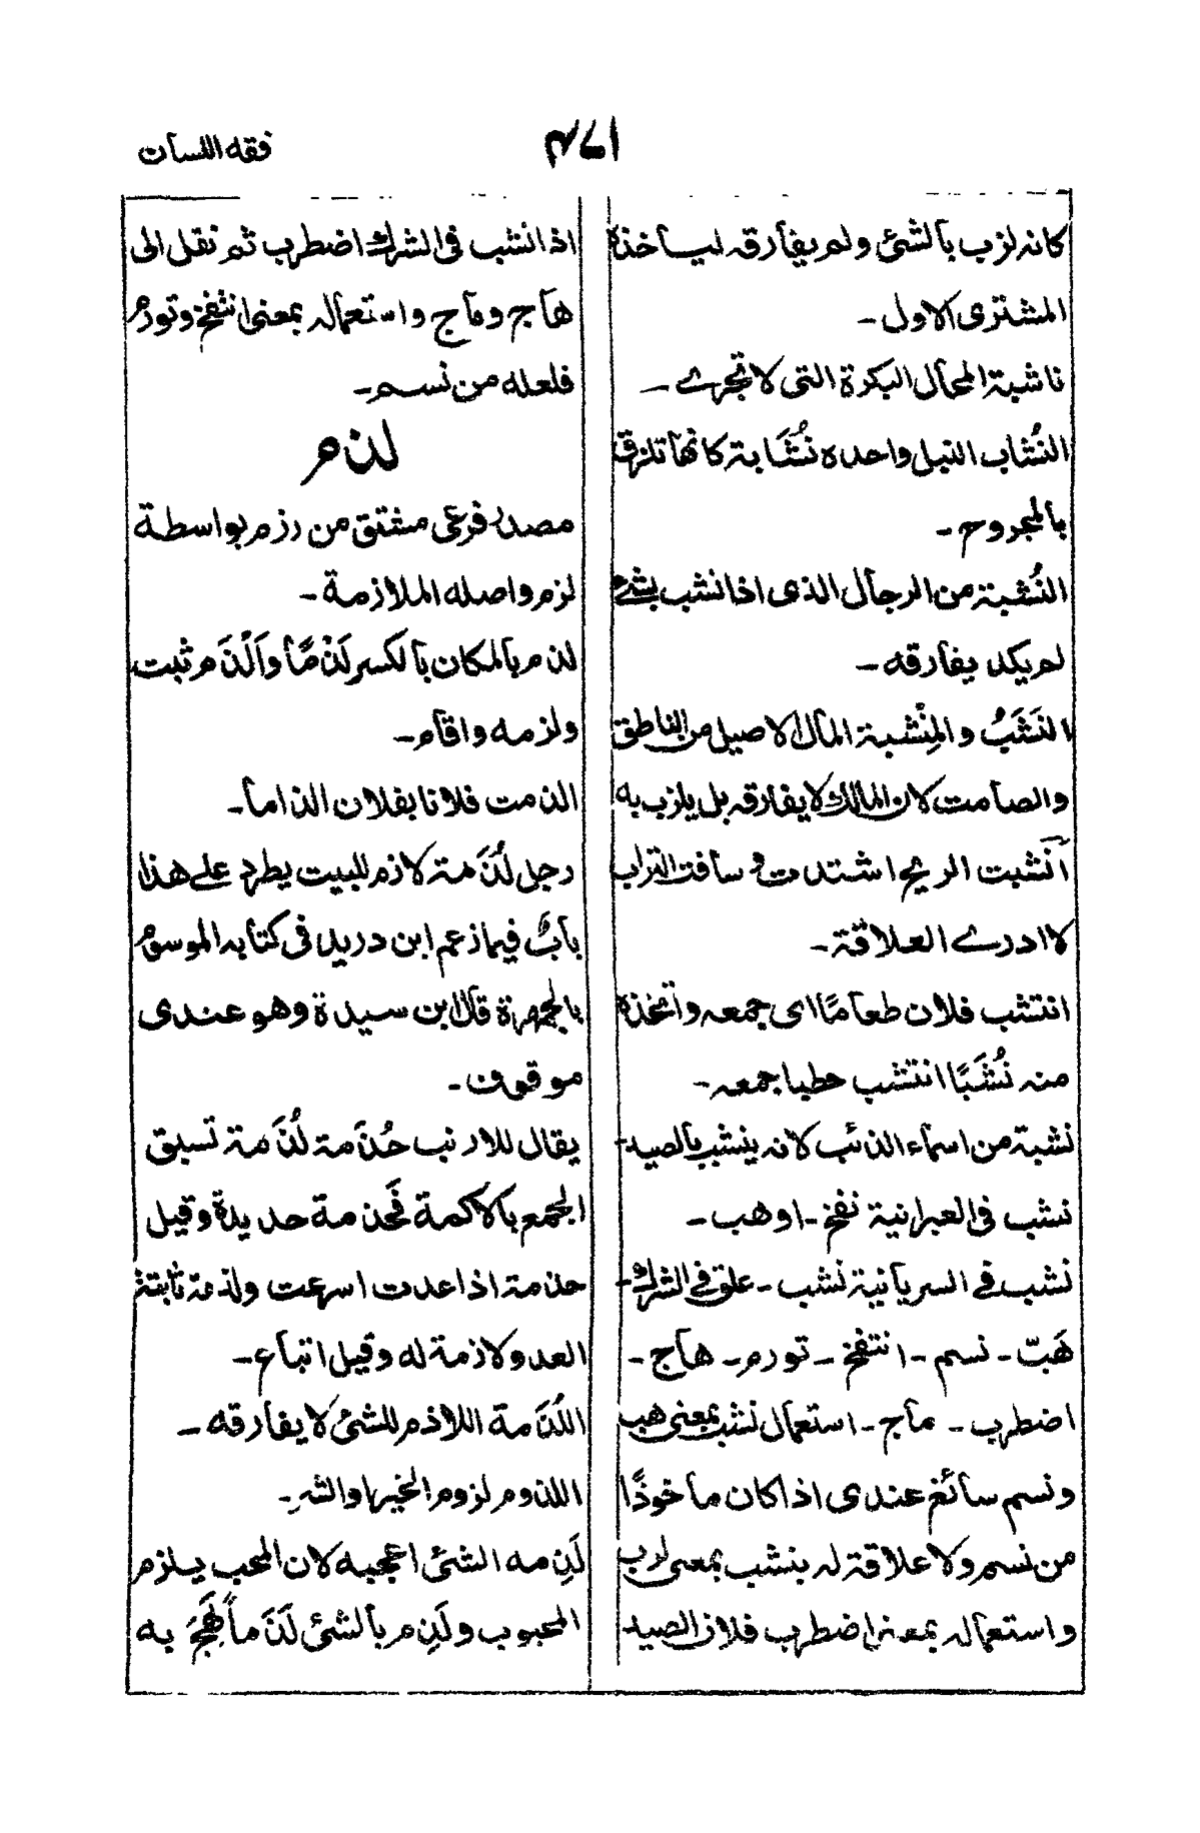 فقه اللسان
كانه لزب بالشئ ولم يفارقه ليأخذه
المشترى الاول ـ
ناشبة المحال البكرة التى لا تجرے ـ
النُشاب النبل واحده نُشَّابة كانها تلزق
بالمجروح ـ
النُشبة من الرجال الذى اذا نشب بشئ
لم يكد يفارقه ـ
النَشَبُ والمِنْشبة المال الاصيل من الناطق
والصامت لان المالك لا يفارقه بل يلزب به
أنشبت الريح اشتدت و سافت التراب
لا ادرے العلاقة ـ
انتشب فلان طعامًا اى جمعه واتخذه
منه نُشَبًا انتشب حطبا جمعه ـ
نشبة من اسماء الذئب لانه ينشب بالصيد ـ
نشب فى العبرانية نفخ ـ اوهب ـ
نشب فے السريانية نشب ـ علق فے الشرك ـ
هَبّ ـ نسم ـ انتفخ ـ تورم ـ هاج ـ
اضطرب ـ ماج ـ استعمال نشب بمعنى هب
ونسم سائغ عندى اذا كان مأخوذًا
من نسم ولا علاقة له بنشب بمعنى لزب
واستعماله بمعنى اضطرب فلان الصيد
اذا نشب فى الشرك اضطرب ثم نقل الى
هاج وماج واستعماله بمعنى انتفخ وتورم
فلعله من نسم ـ
لذم
مصدر فرعى مشتق من رزم بواسطة
لزم واصله الملازمة ـ
لذم بالمكان بالكسر لَذْمًا وأَلْذَم ثبت
ولزمه واقام ـ
الذمت فلانا بفلان الذاما ـ
رجل لُذَمة لازم للبيت يطرد علے هذا
بابٌ فيما زعم ابن دريد فى كتابه الموسوم
بالجمهرة قال ابن سيدة وهو عندى
موقوف ـ
يقال للارنب حُذَمة لُذَمة تسبق
الجمع بالاكمة فَحذمة حديدة وقيل
حذمة اذا عدت اسرعت ولذمة ثابتة
العدو لازمة له وقيل اتباع ـ
اللُذَمة اللازم للشئ لا يفارقه ـ
اللذوم لزوم الخير او الشر ـ
لَذِمه الشئ اعجبه لان المحب يلزم
المحبوب ولَذِم بالشئ لَذَماً لَهِجَ به